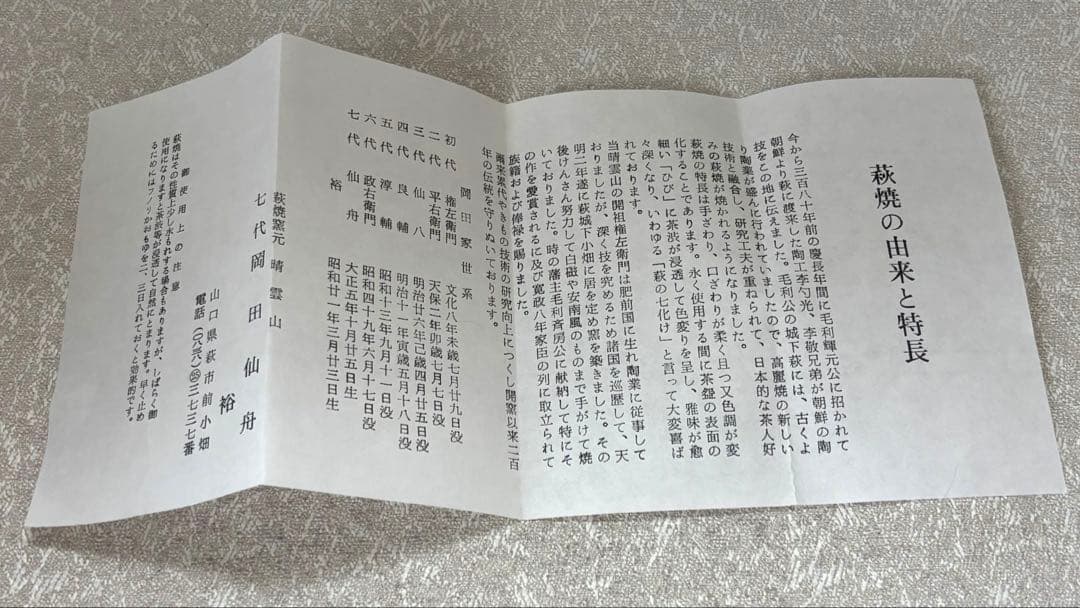 萩焼の由来と特長
今から三百八十年前の慶長年間に毛利輝元公に招かれて
朝鮮より萩に渡来した陶工李勺光、李敬兄弟が朝鮮の陶
技をこの地に伝えました。毛利公の城下萩には、古くよ
り陶業が盛んに行われていましたので、高麗焼の新しい
技術と融合し、研究工夫が重ねられて、日本的な茶人好
みの萩焼が焼かれるようになりました。
萩焼の特長は手ざわり、口ざわりが柔く且つ又色調が変
化することであります。永く使用する間に茶盌の表面の
細い「ひび」に茶渋が浸透して色変りを呈し、雅味が愈
々深くなり、いわゆる「萩の七化け」と言って大変喜ば
れております。
当晴雲山の開祖権左衛門は肥前国に生れ陶業に従事して
おりましたが、深く技を究めるため諸国を巡歴して、天
明二年遂に萩城下小畑に居を定め窯を築きました。その
後けんさん努力して白磁や安南風のものまで手がけて焼
いておりました。時の藩主毛利斉房公に献納して特にそ
の作を愛賞されるに及び寛政八年家臣の列に取立られて
族籍および俸禄を賜りました。
爾来累代やきもの技術の研究向上につくし開窯以来二百
年の伝統を守りぬいております。
岡田家世系
初代 権左衛門 文化八年未歳七月廿九日没
二代 平右衛門 天保二年卯歳七月七日没
三代 仙八 明治廿六年己歳四月廿五日没
四代 良輔 明治十一年寅歳五月十八日没
五代 淳輔 昭和十三年九月十一日没
六代 政右衛門 昭和四十九年六月十七日没
七代 仙舟 大正五年十月廿五日生
裕 昭和廿一年三月廿三日生
萩焼窯元 晴雲山
七代 岡田仙舟
裕
山口県萩市前小畑
電話(〇八三八)㉒三七三七番
御使用上の注意
萩焼はその性質上少し水もれする場合もありますが、しばらく御
使用になりますと茶渋等が浸透して自然にとまります。早く止め
るためにはフノリかおもゆを二、三日入れておくと効果的です。